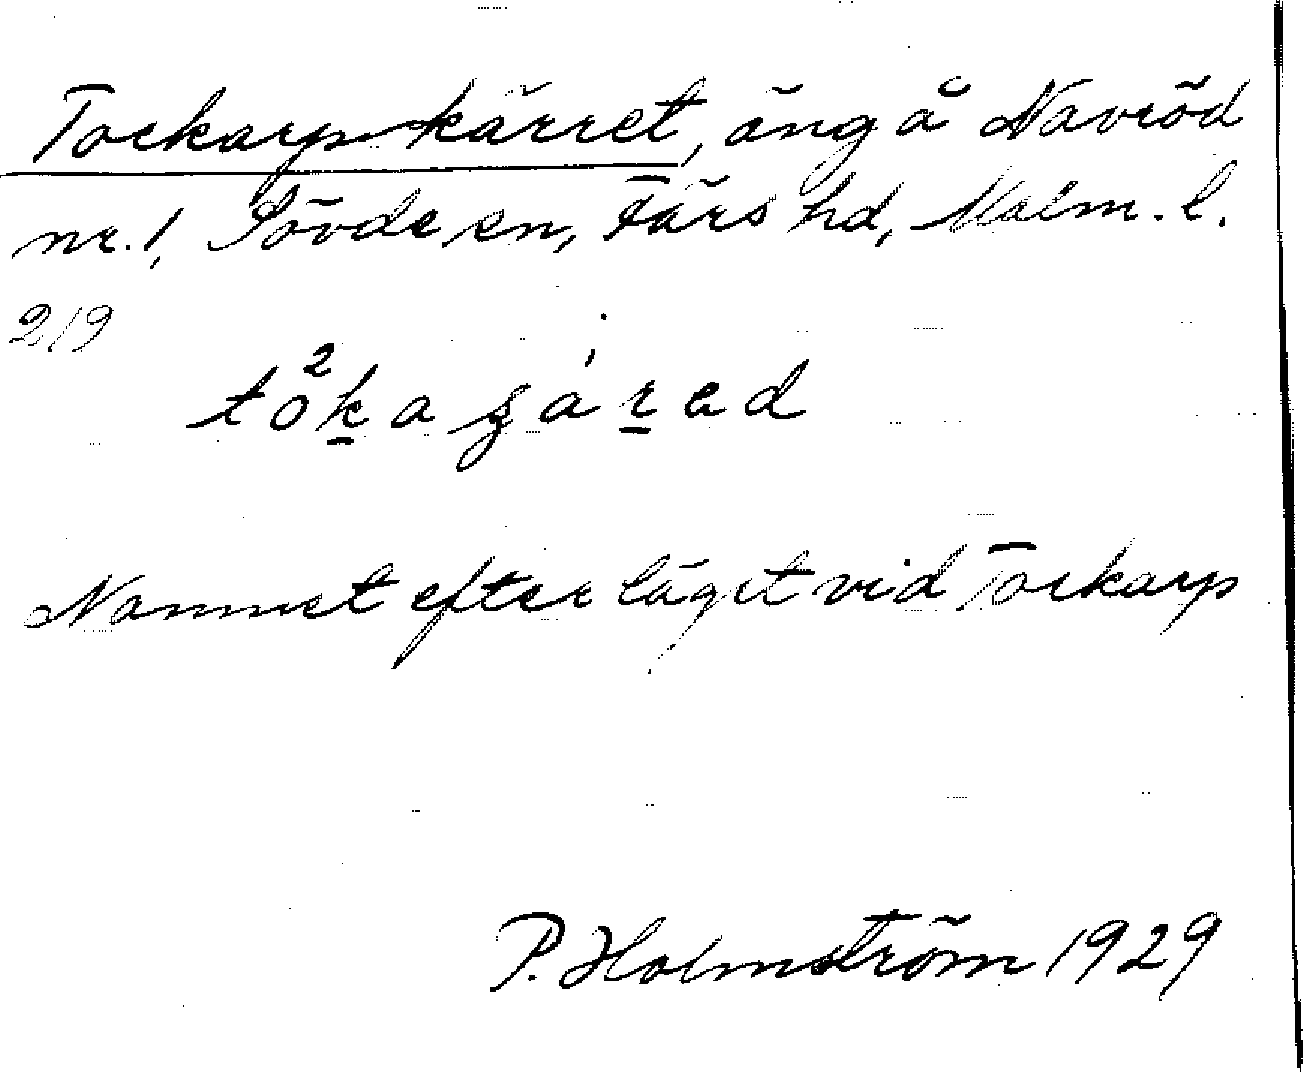 Tockarpskärret, äng å Navröd
nr. 1, Sövde sn, Färs hd, Malm. l.
2/9
Namnet efter läget vid Tockarp
P. Holmström 1929